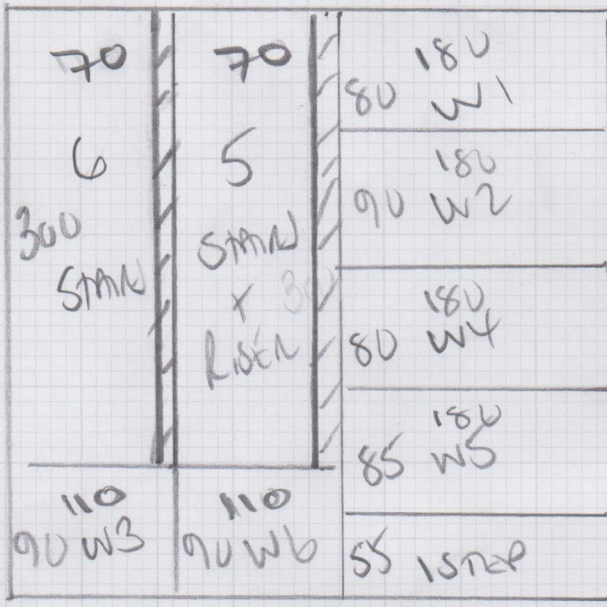 70
6
300
STAIR
110
90 W3
70
5
STAIR
+ 30
RISER
110
90 W6
180
80 W1
180
90 W2
180
80 W4
180
85 W5
55 1 STEP